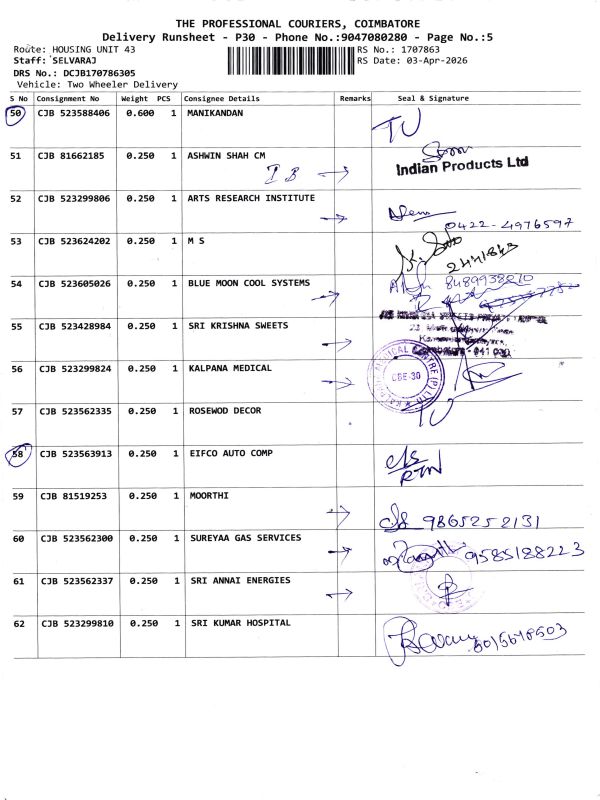 THE PROFESSIONAL COURIERS, COIMBATORE
Delivery Runsheet - P30 - Phone No.:9047080280 - Page No.:5
Route: HOUSING UNIT 43
RS No.: 1707863
Staff: SELVARAJ
RS Date: 03-Apr-2026
DRS No.: DCJB170786305
Vehicle: Two Wheeler Delivery
S No Consignment No Weight PCS Consignee Details Remarks Seal & Signature
50 CJB 523588406 0.600 1 MANIKANDAN
51 CJB 81662185 0.250 1 ASHWIN SHAH CM
IB → Indian Products Ltd
52 CJB 523299806 0.250 1 ARTS RESEARCH INSTITUTE
→ 0422-4976597
53 CJB 523624202 0.250 1 M S
54 CJB 523605026 0.250 1 BLUE MOON COOL SYSTEMS
→
55 CJB 523428984 0.250 1 SRI KRISHNA SWEETS
→
56 CJB 523299824 0.250 1 KALPANA MEDICAL
→ CBE-30
57 CJB 523562335 0.250 1 ROSEWOD DECOR
58 CJB 523563913 0.250 1 EIFCO AUTO COMP
RTN
59 CJB 81519253 0.250 1 MOORTHI
→ 9865252131
60 CJB 523562300 0.250 1 SUREYAA GAS SERVICES
→ 9585188223
61 CJB 523562337 0.250 1 SRI ANNAI ENERGIES
→
62 CJB 523299810 0.250 1 SRI KUMAR HOSPITAL